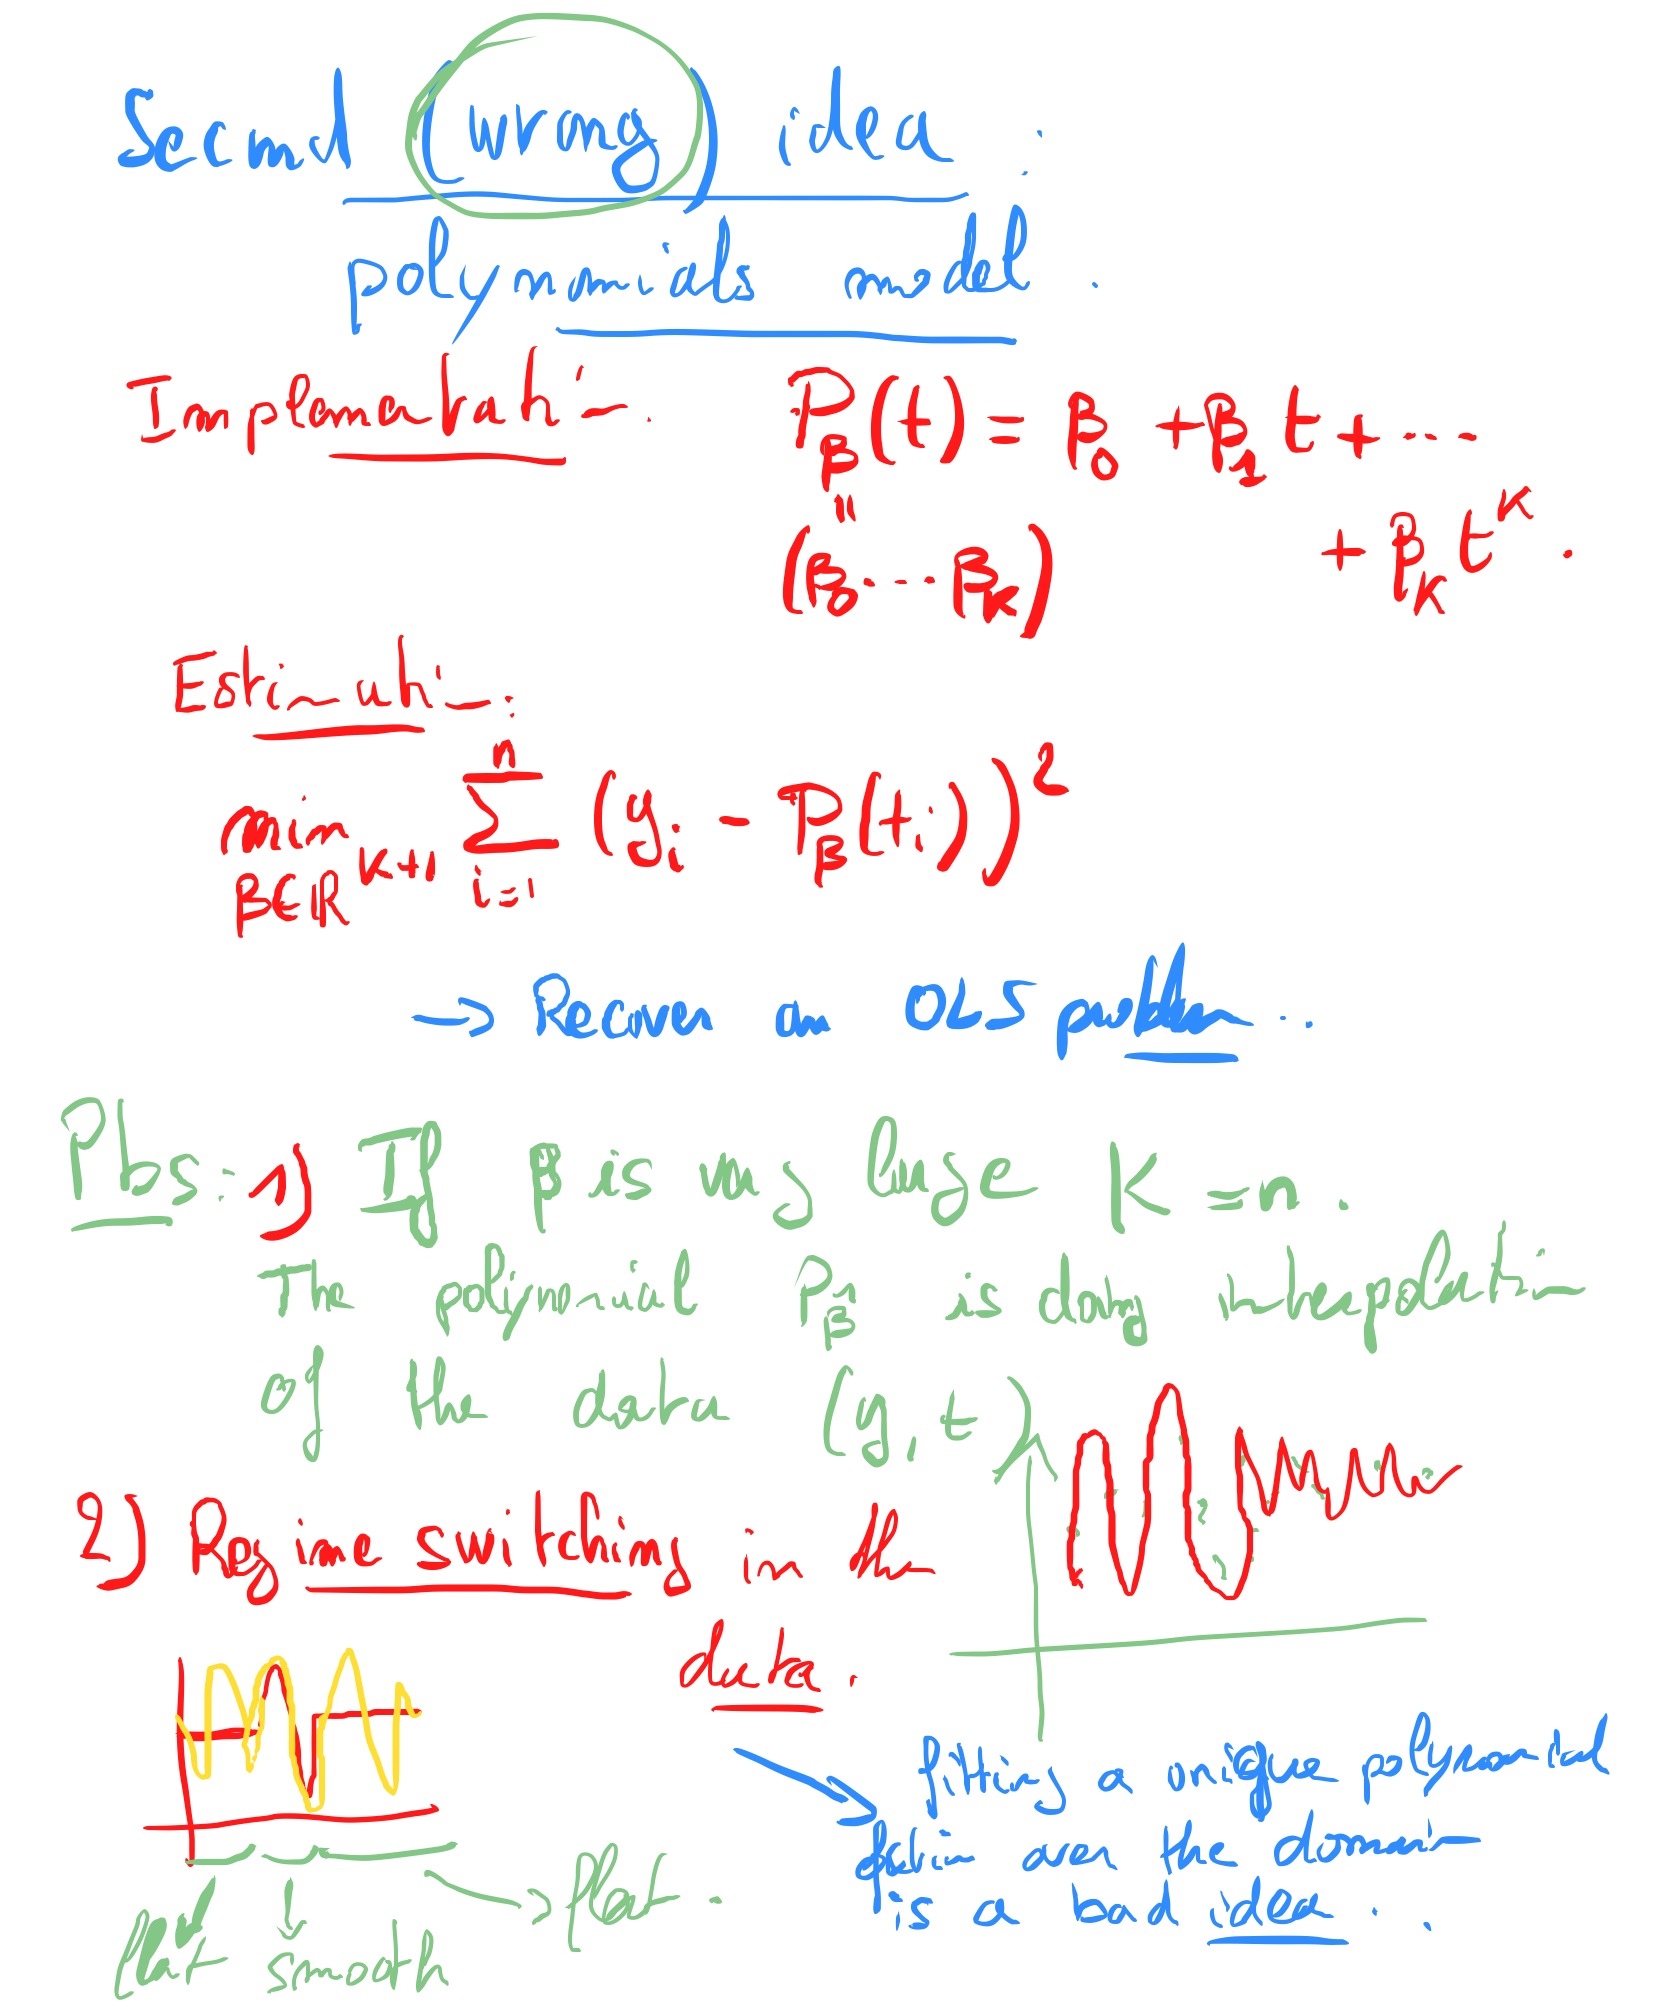 Second (wrong) idea :
polynomials model .
Implementation : P_β(t) = β_0 + β_1 t + ...
+ β_K t^K .
=
(β_0 ... β_K)
Estimation :
min_{β∈ℝ^{K+1}} ∑_{i=1}^{n} (y_i - P_β(t_i))^2
→ Recover an OLS problem ..
Pbs : 1) If β is very large K = n .
The polynomial P_β̂ is doing interpolation
of the data (y, t)
2) Regime switching in the
data .
fitting a unique polynomial
function over the domain
is a bad idea . .
→ flat .
flat smooth